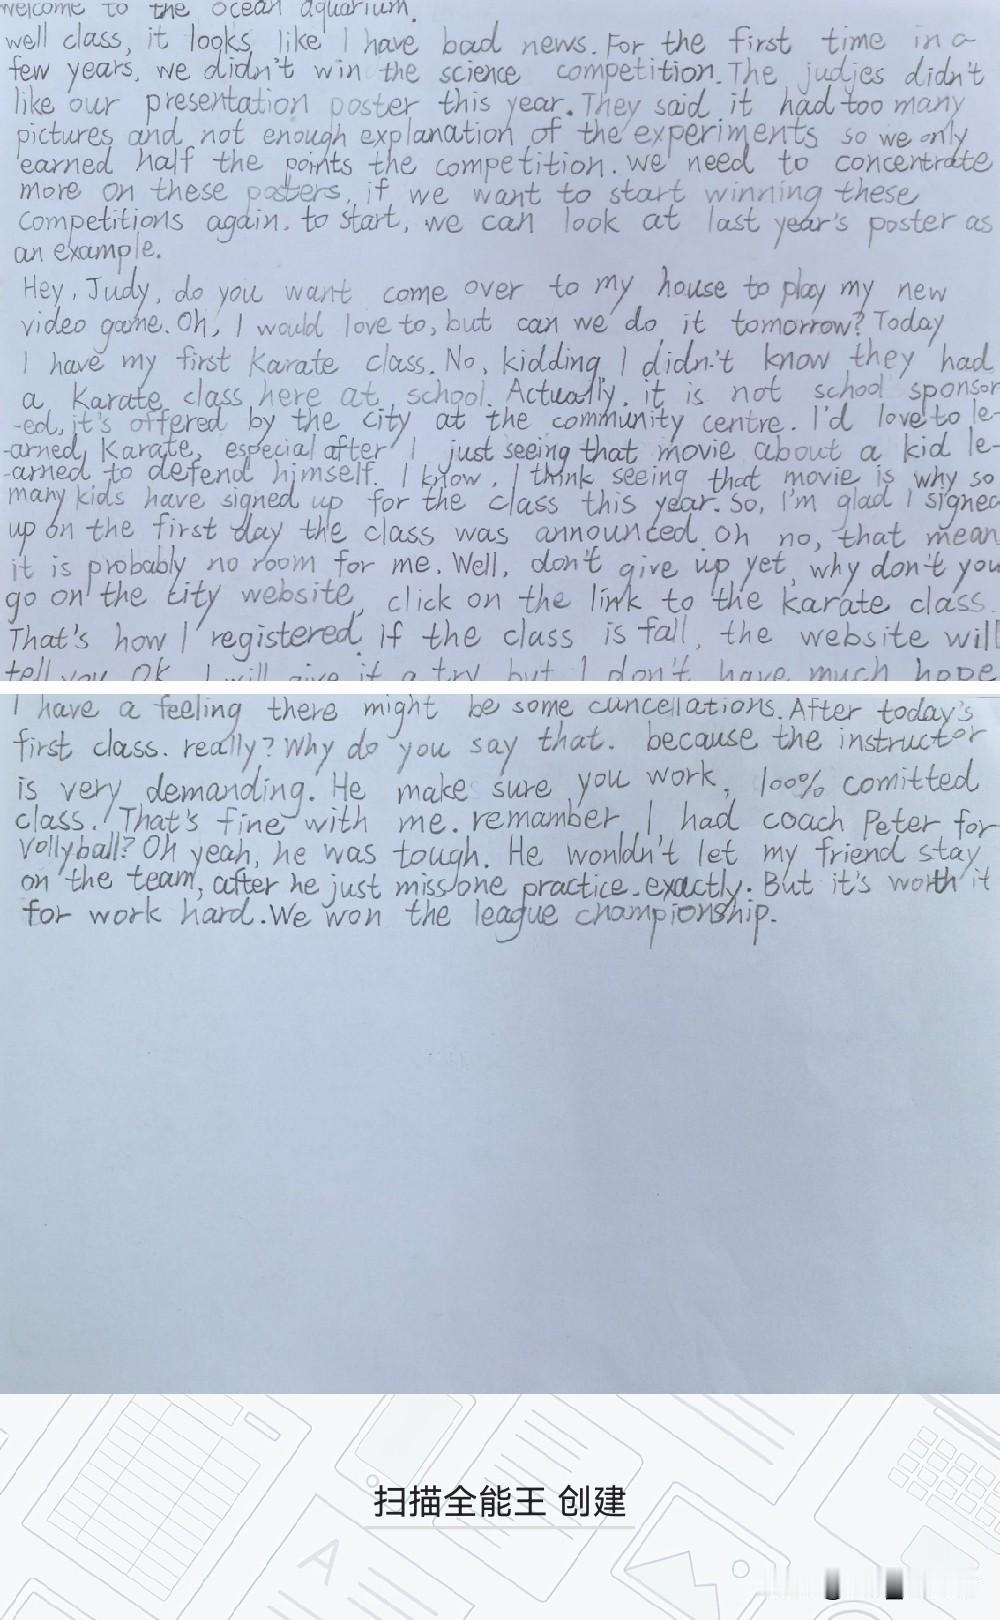 welcome to the ocean aquarium.
well class, it looks like I have bad news. For the first time in a
few years, we didn't win the science competition. The judjes didn't
like our presentation poster this year. They said it had too many
pictures and not enough explanation of the experiments so we only
earned half the points the competition. we need to concentrate
more on these posters, if we want to start winning these
competitions again. to start, we can look at last year's poster as
an example.
Hey, Judy, do you want come over to my house to play my new
video game. Oh, I would love to, but can we do it tomorrow? Today
I have my first Karate class. No, kidding, I didn't know they had
a Karate class here at school. Actually, it is not school sponsor
-ed, it's offered by the city at the community centre. I'd love to le-
-arned Karate, especial after I just seeing that movie about a kid le-
-arned to defend himself. I know, I think seeing that movie is why so
many kids have signed up for the class this year. So, I'm glad I signed
up on the first day the class was announced oh no, that mean
it is probably no room for me. Well, don't give up yet, why don't you
go on the city website, click on the link to the karate class.
That's how I registered. If the class is fall, the website will
tell you OK, I will give it a try but I don't have much hope
I have a feeling there might be some cuncellations. After today's
first class. really? Why do you say that. because the instructor
is very demanding. He make sure you work, 100% comitted
class. That's fine with me. remamber I had coach Peter for
vollyball? Oh yeah, he was tough. He wouldn't let my friend stay
on the team, after he just miss one practice. exactly. But it's worth it
for work hard. We won the league championship.
扫描全能王 创建